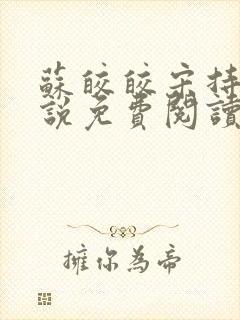 蘇皎皎宋持
說免費閱讀
擁你為帝